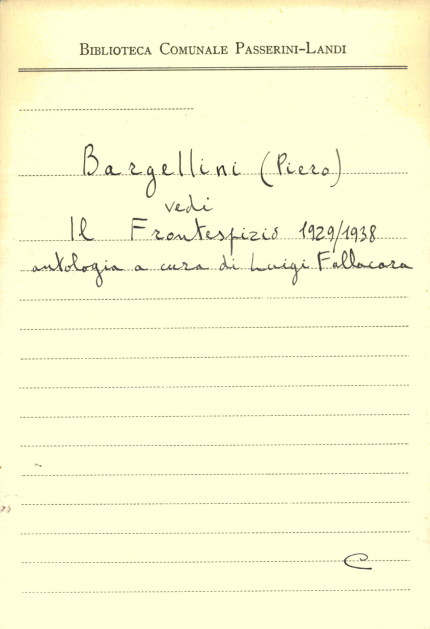 BIBLIOTECA COMUNALE PASSERINI-LANDI
Bargellini (Piero)
vedi
Il Frontespizio 1929/1938
antologia a cura di Luigi Fallacara
C